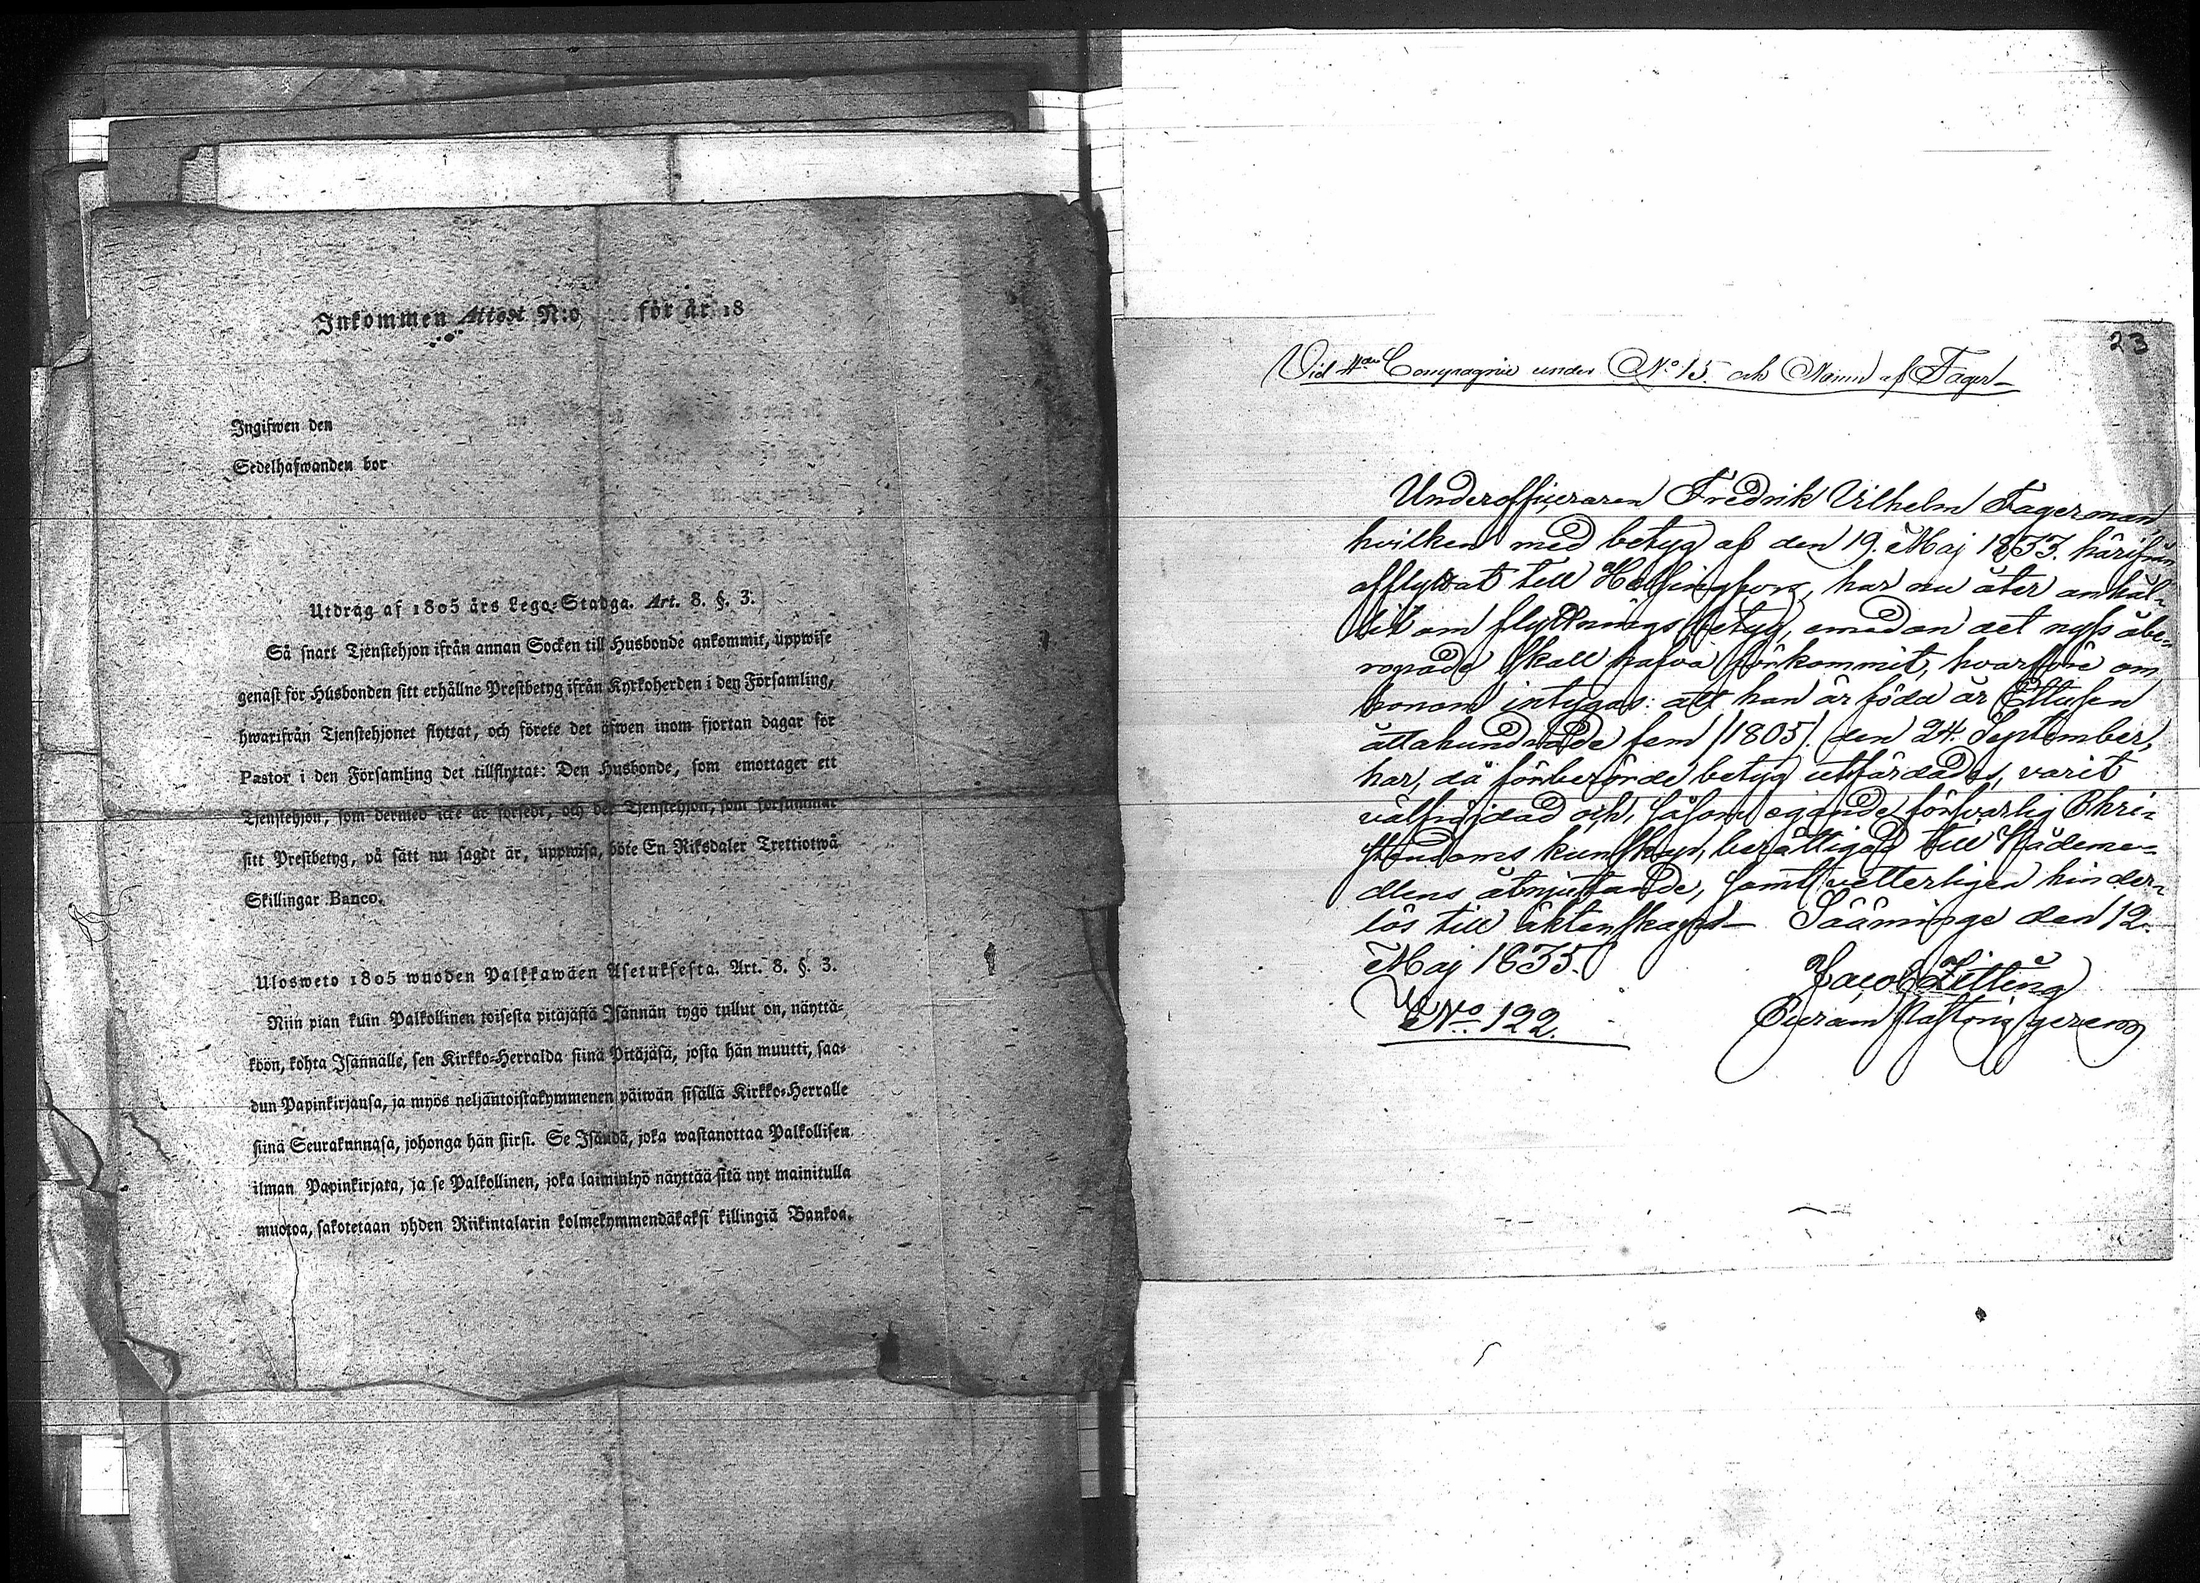 Inkommen Attest N:o för år 18
Ingifwen den
Sedelhafwanden bor
Utdrag af 1805 års Lego-Stadga. Art. 8. §. 3.
Så snart Tjenstehjon ifrån annan Socken till Husbonde ankommit, uppwise
genast för Husbonden sitt erhållne Prestbetyg ifrån Kyrkoherden i den Församling,
hwarifrån Tjenstehjonet flyttat, och förete det äfwen inom fjortan dagar för
Pastor i den Församling det tillflyttat: Den Husbonde, som emottager ett
Tjenstehjon, som dermed icke är försedt, och det Tjenstehjon, som försummar
sitt Prestbetyg, på sätt nu sagdt är, uppwisa, böte En Riksdaler Trettiotwå
Skillingar Banco.
Ulosweto 1805 wuoden Palkkawäen Asetuksesta. Art. 8. §. 3.
Niin pian kuin Palkollinen toisesta pitäjästä Isännän tygö tullut on, näyttä-
köön, kohta Isännälle, sen Kirkko-Herralda siinä Pitäjäsä, josta hän muutti, saa-
dun Papinkirjansa, ja myös neljäntoistakymmenen päiwän sisällä Kirkko-Herralle
siinä Seurakunnasa, johonga hän siirsi. Se Isändä, joka wastanottaa Palkollisen
ilman Papinkirjata, ja se Palkollinen, joka laiminlyö näyttää sitä nyt mainitulla
muotoa, sakotetaan yhden Riikintalarin kolmekymmendäkaksi killingiä Bankoa.
23
Vid 4de Compagnie under No 15. och Namn af Fager
Underofficeraren Fredrik Vilhelm Fagerman,
hvilken med betyg af den 19. Maj 1833. härifrån
afflyttat till Helsingfors, har nu åter anhål-
lit om flyttnings betyg, emedan det nyss åbe-
ropade skall hafva förkommit, hvarföre om
honom intygas: att han är född år Ettusen
åttahundrade fem /1805/. den 24. September,
har, då förberörde betyg utfärdades, varit
välfrejdad och, såsom egande försvarlig Chri-
stendoms kunskap, berättigad till Nådeme-
dlens åtnjutande, samt vetterligen hinder-
lös till äktenskap. Sääminge den 12.
Maj 1835.
Jacob Zitting
No. 122.